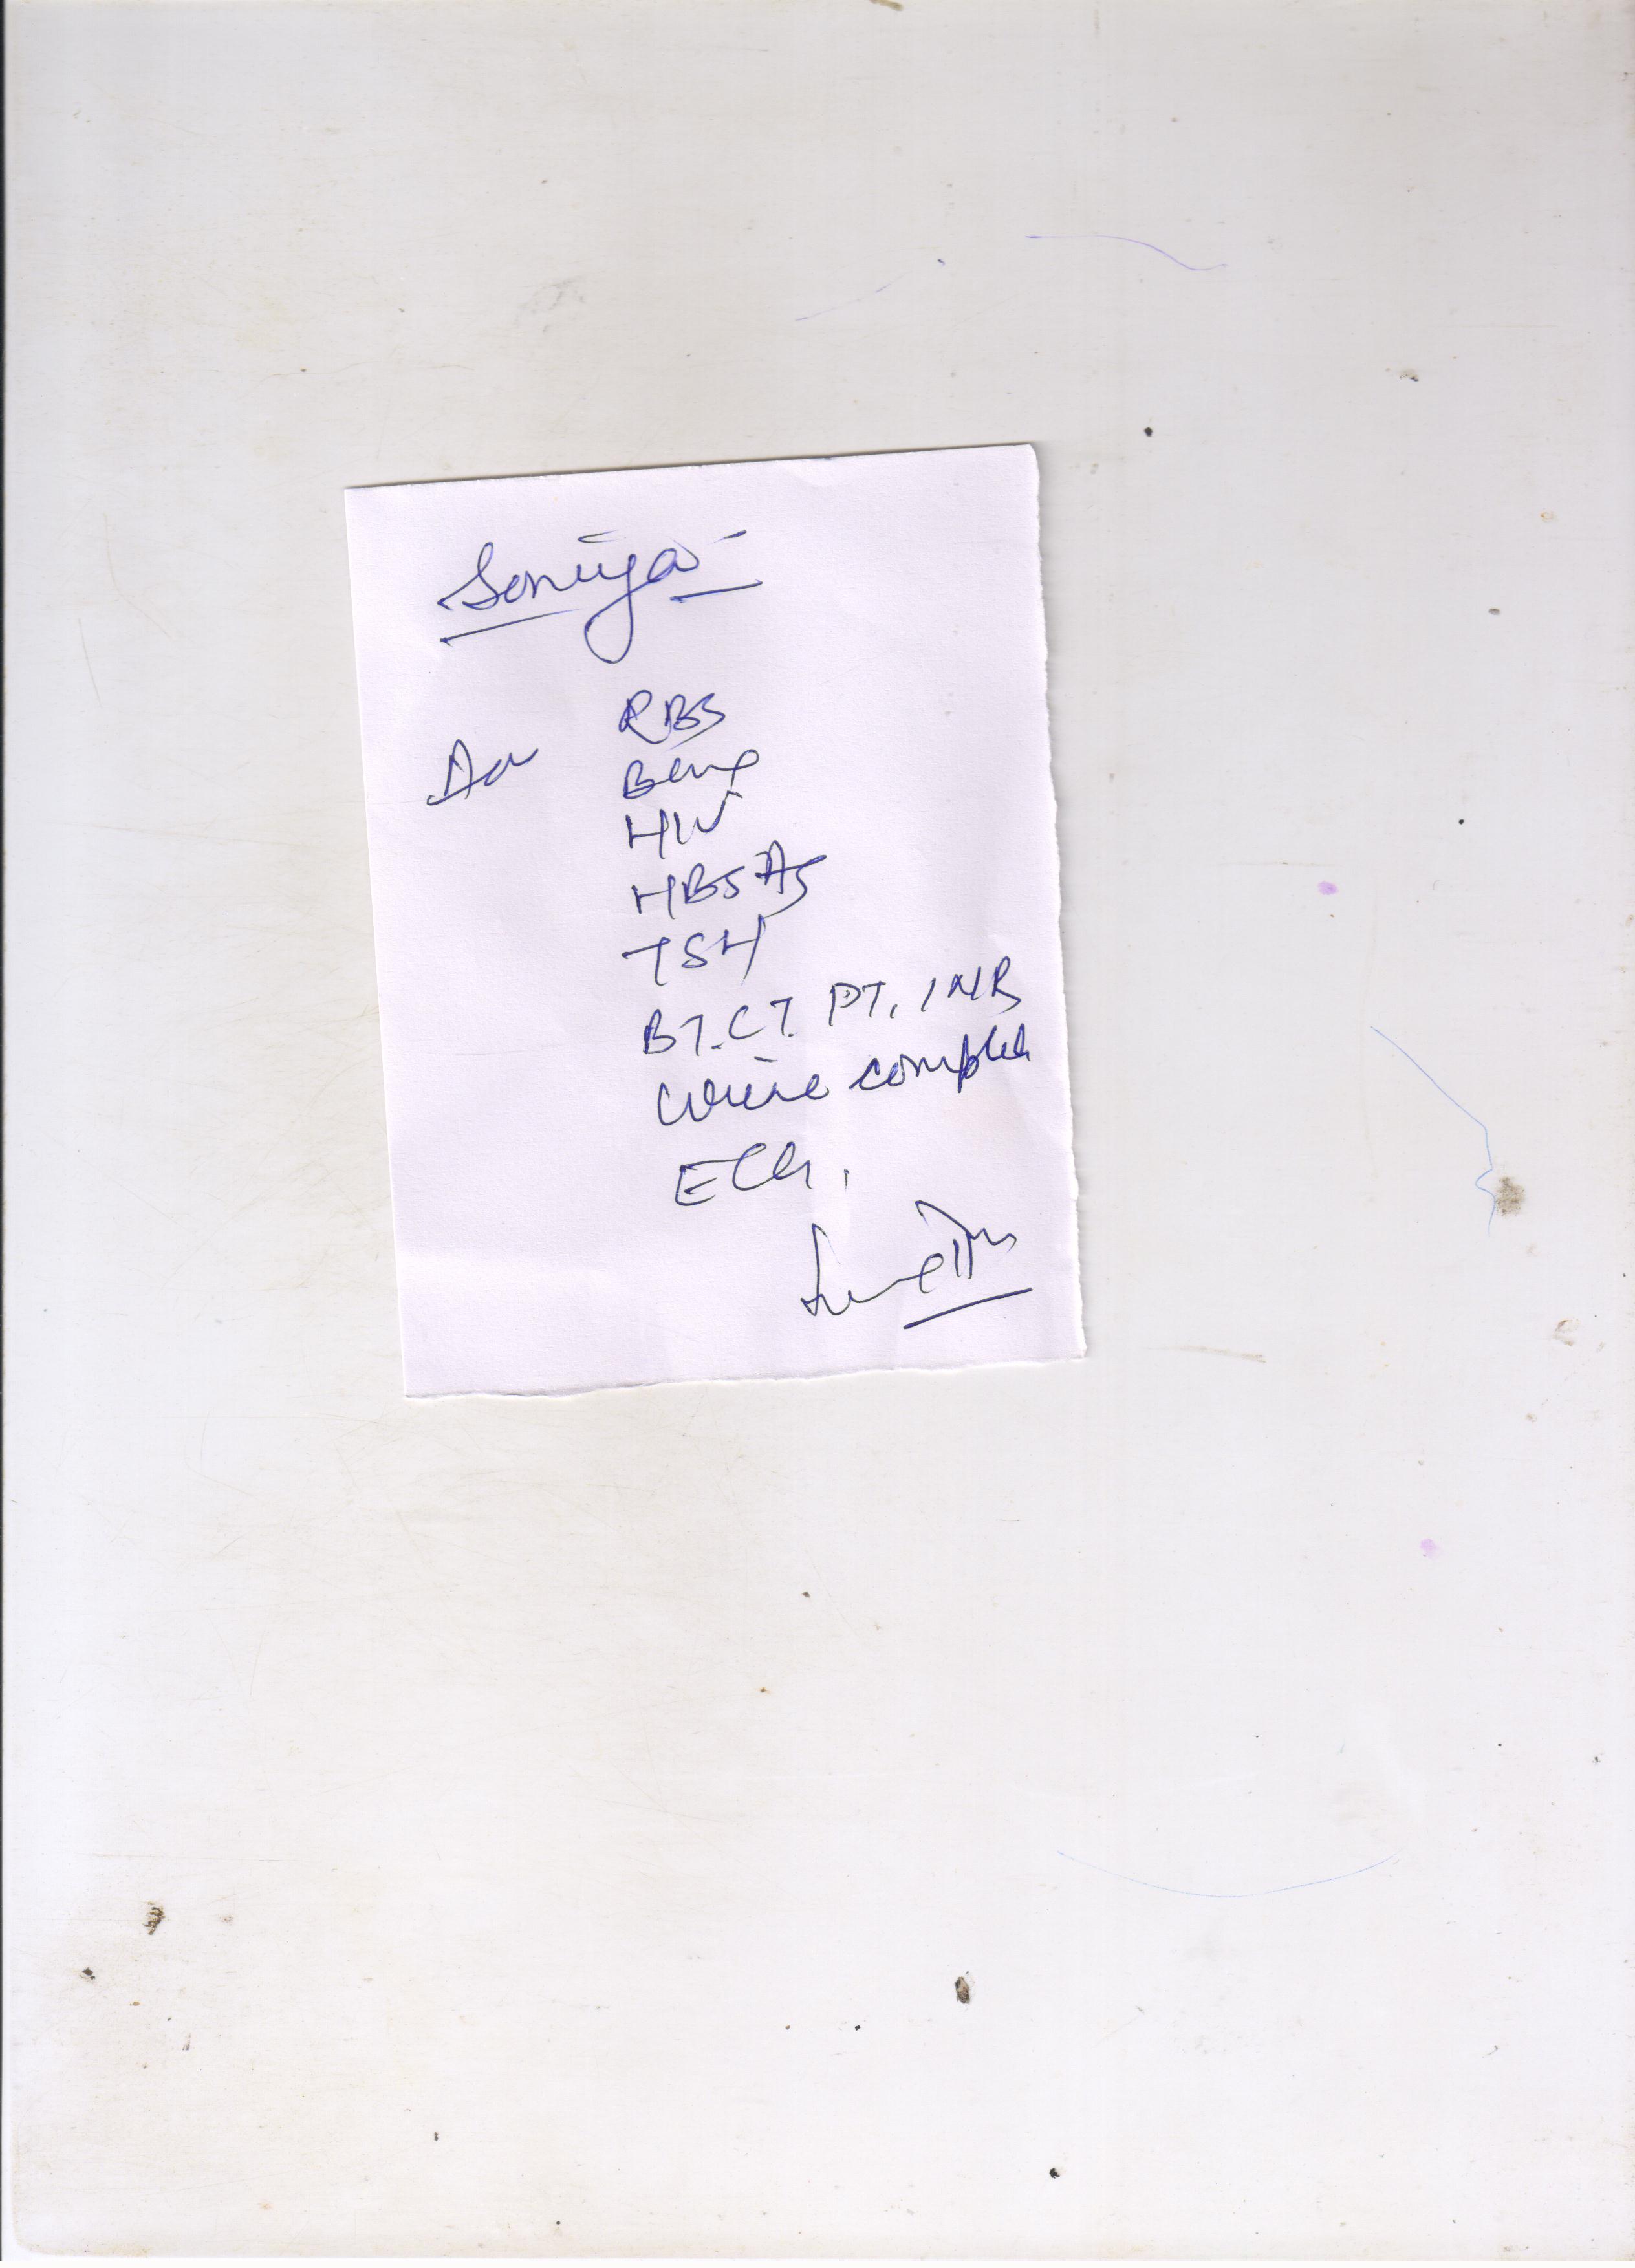 Soniya
Adv RBS
HIV
HBSAg
TSH
BT. CT. PT, INR
Urine complete
ECG,